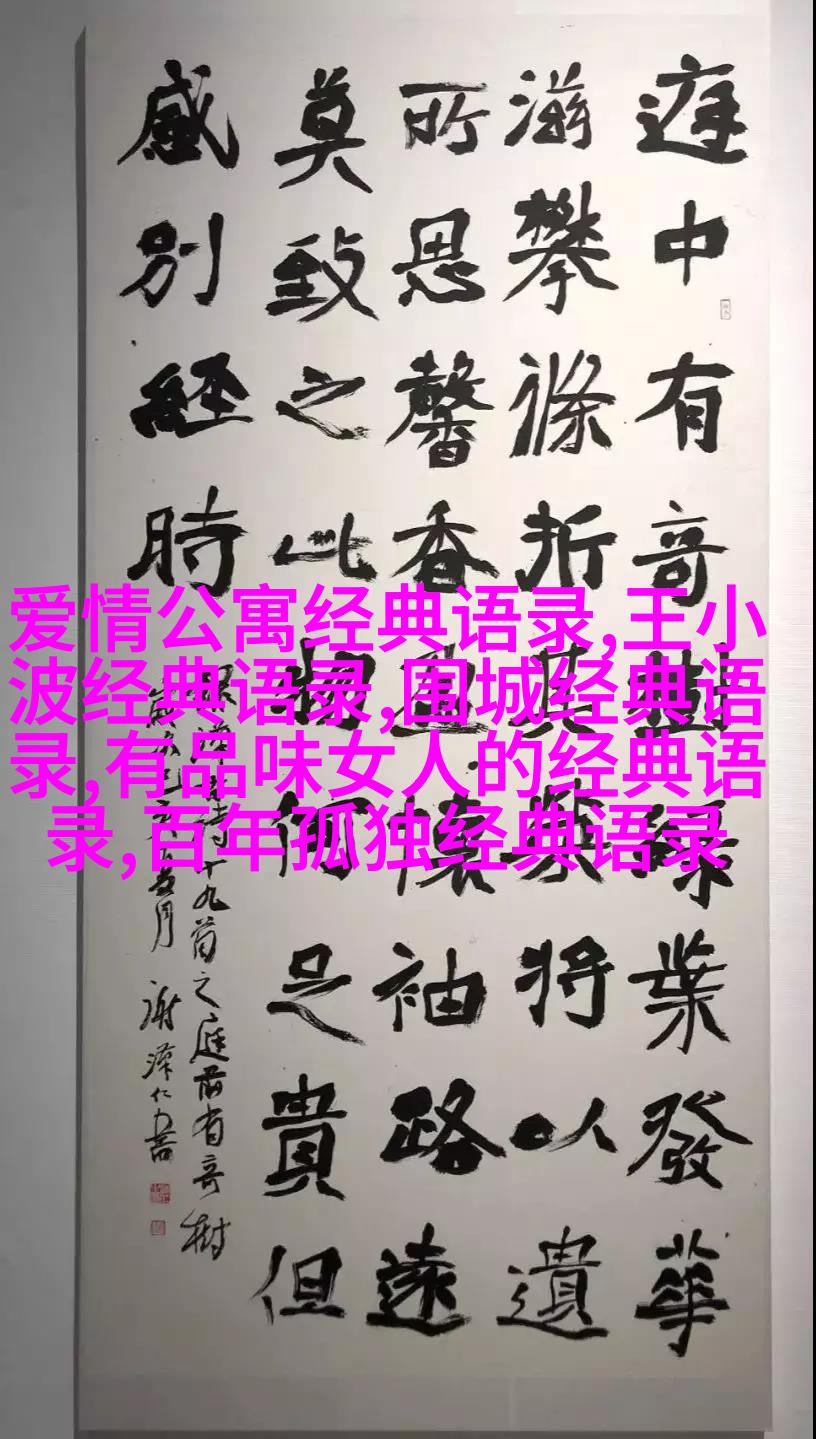 庭中有奇樹綠葉發華
滋攀條折其榮將以遺
所思馨香盈懷袖路遠
莫致之此物何足貴但
感別經時
詩十九首之庭前有奇樹
月 謝澤仁書
爱情公寓经典语录,王小
波经典语录,围城经典语
录,有品味女人的经典语
录,百年孤独经典语录